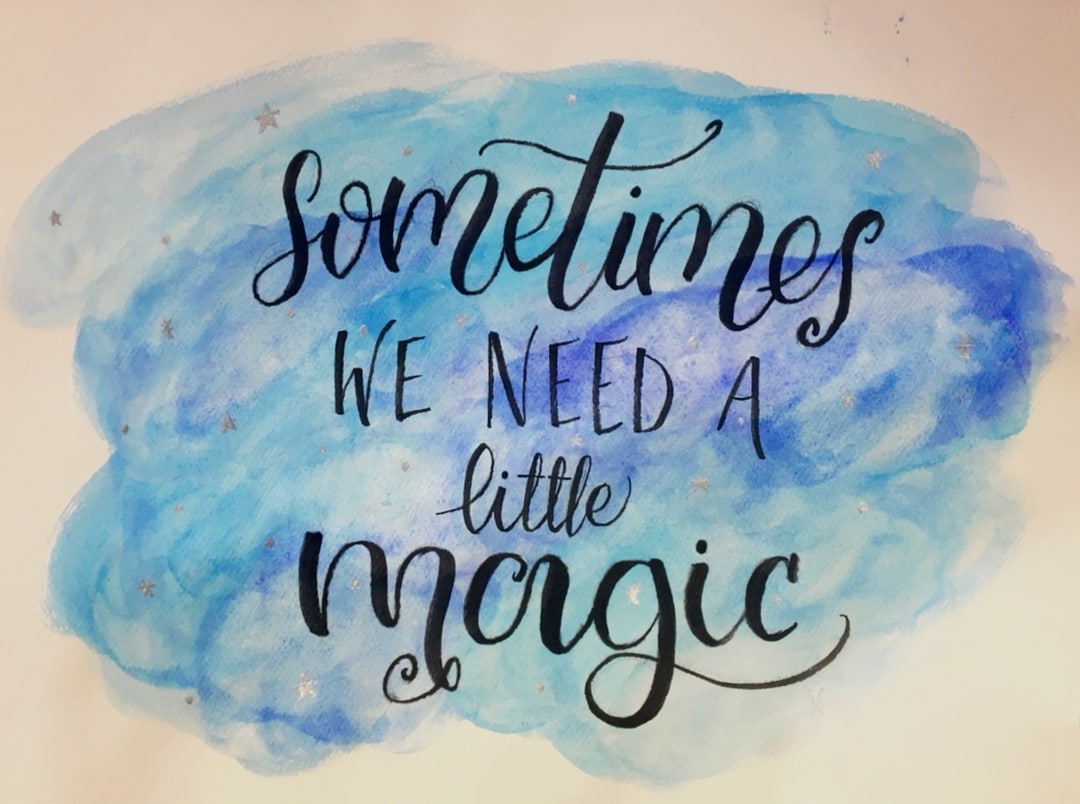 Sometimes
WE NEED A
little
magic